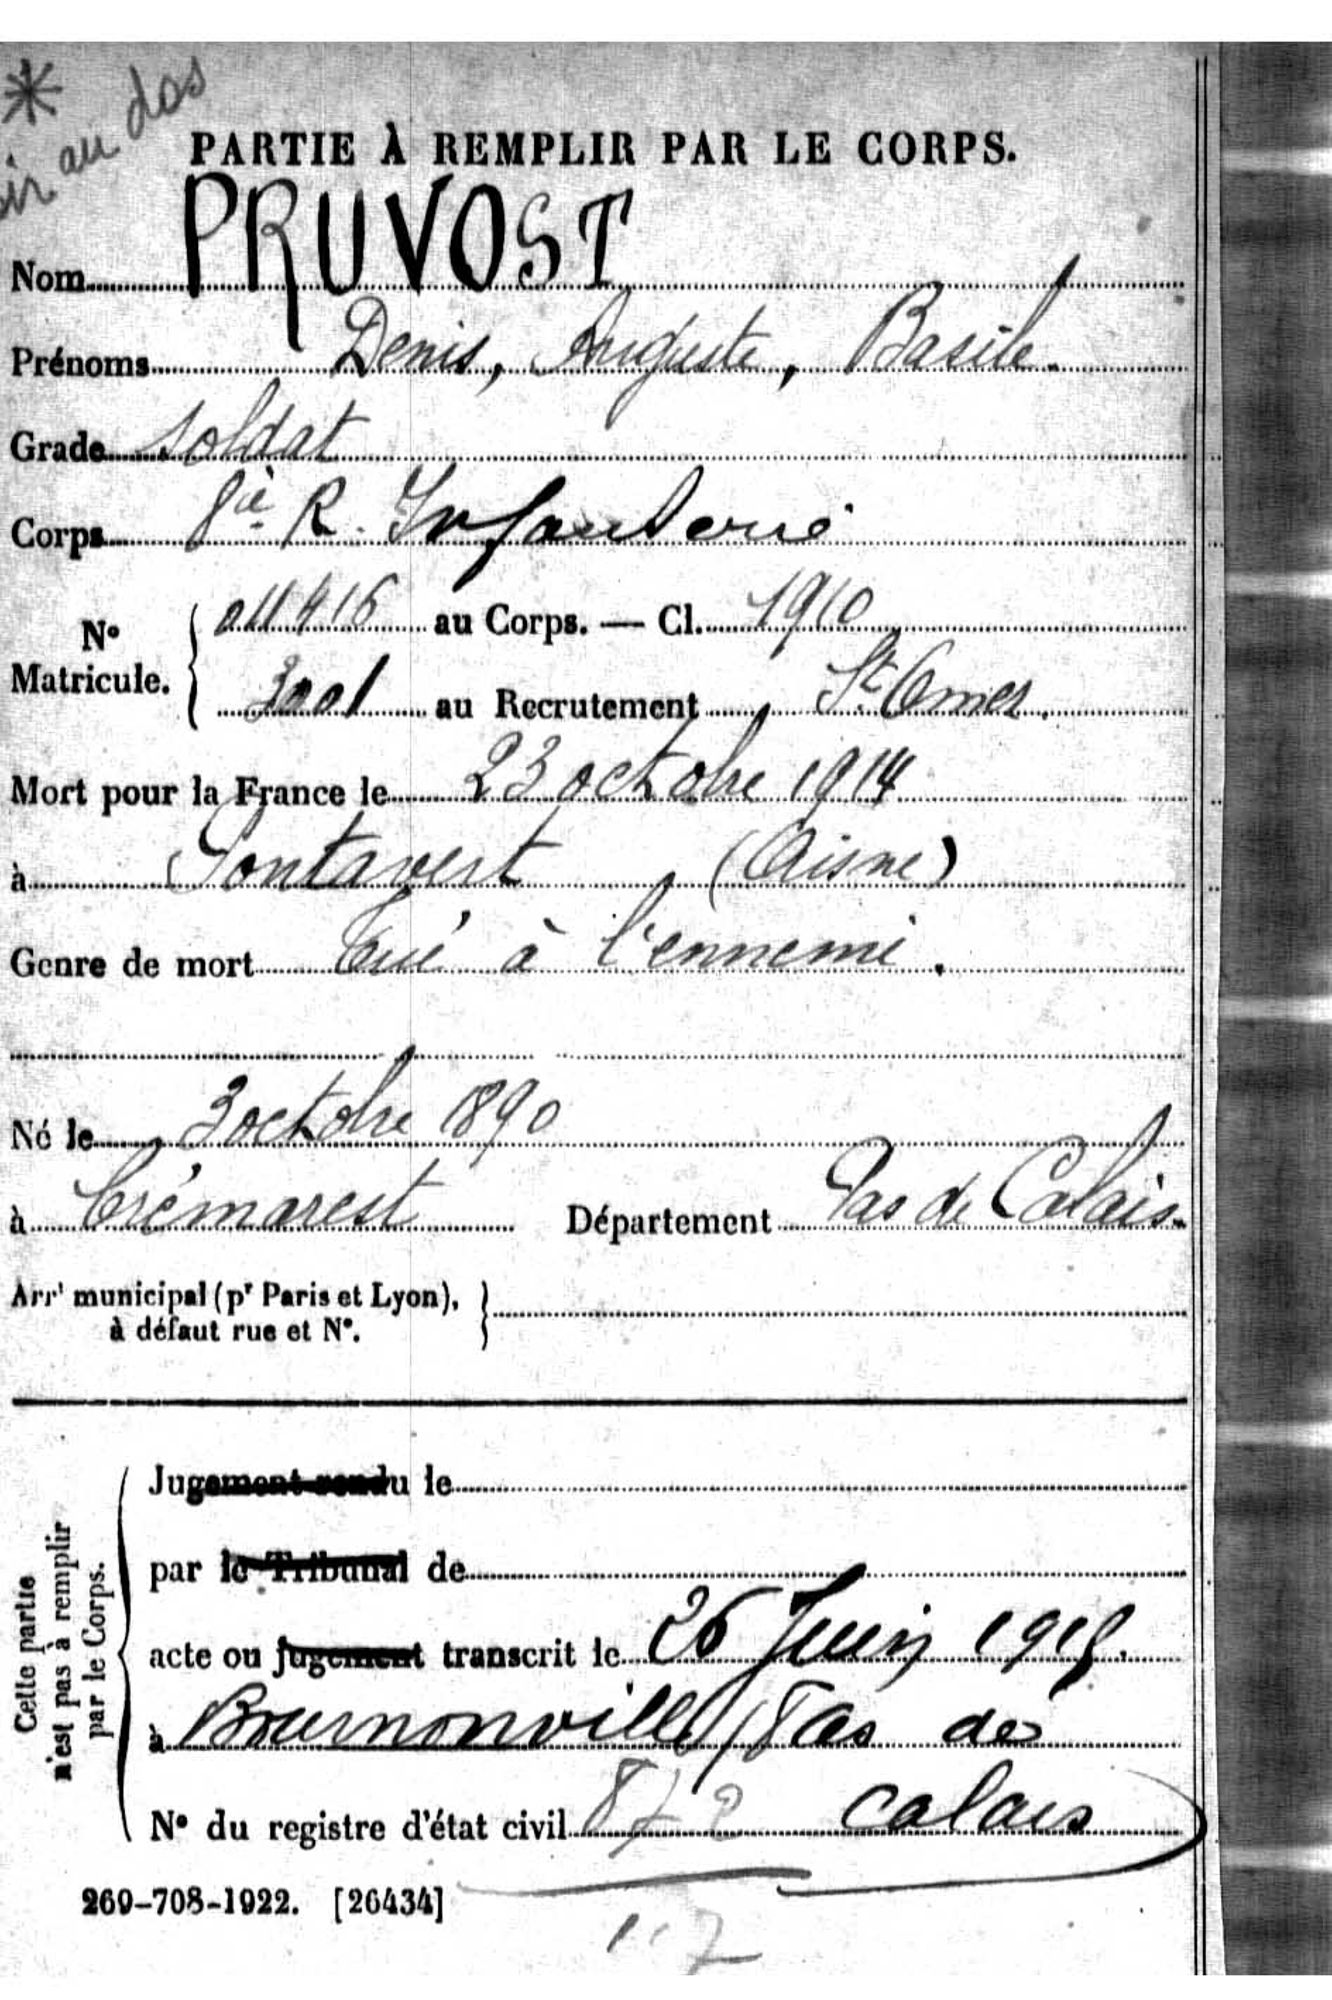 * au dos
PARTIE À REMPLIR PAR LE CORPS.
Nom PRUVOST
Prénoms Denis, Auguste, Basile.
Grade soldat
Corps 8è R. Infanterie
N° Matricule. 011416 au Corps. — Cl. 1910
3001 au Recrutement St Omer.
Mort pour la France le 23 octobre 1914
à Pontavert (Aisne)
Genre de mort Tué à l'ennemi.
Né le 3 octobre 1890
à Crémarest Département Pas de Calais.
Arrt municipal (pr Paris et Lyon),
à défaut rue et N°.
Cette partie
n'est pas à remplir
par le Corps.
Jugement rendu le
par le Tribunal de
acte ou jugement transcrit le 26 Juin 1915.
à Bournonville (Pas de
N° du registre d'état civil Calais)
269-708-1922. [26434]